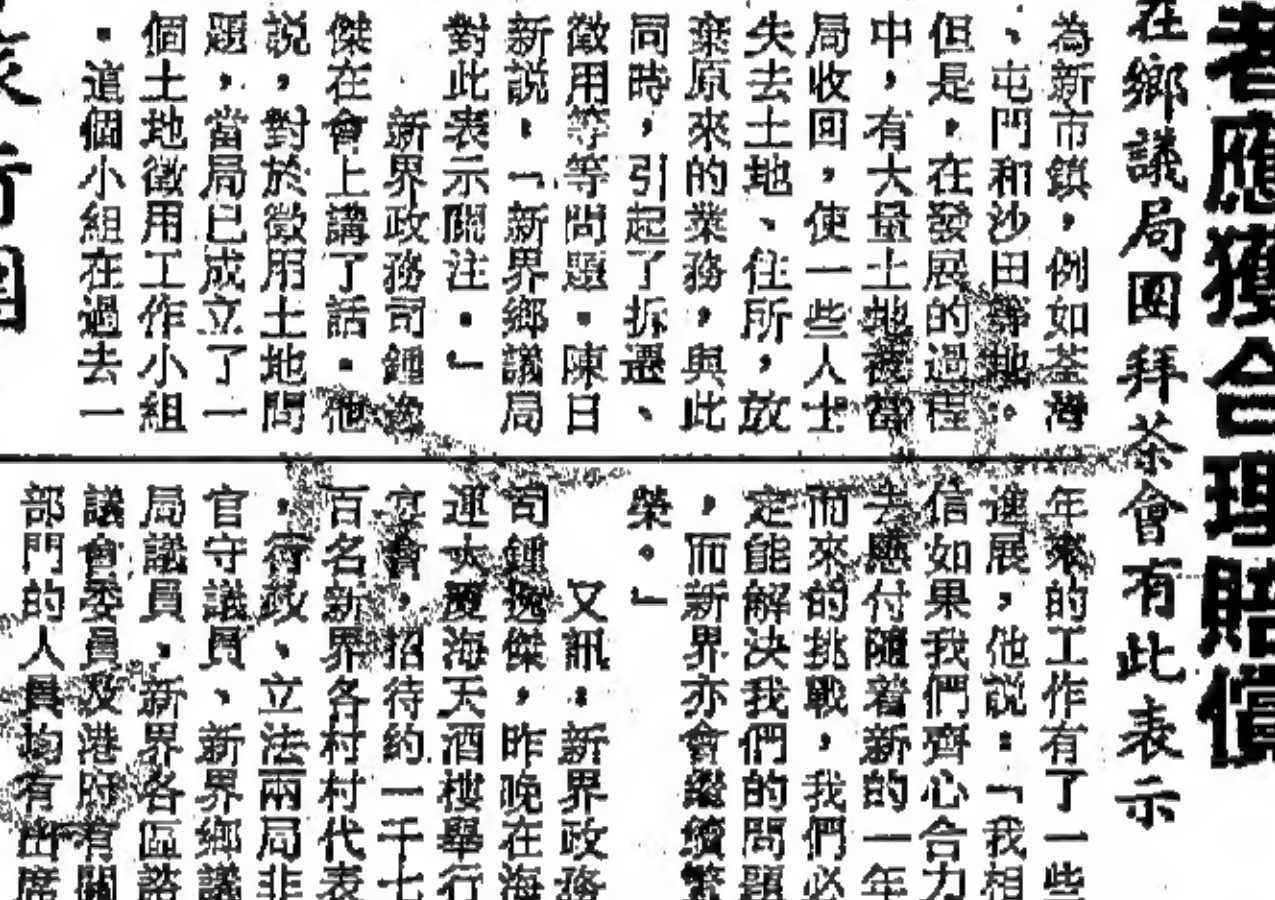 者應獲合理賠償
在鄉議局團拜茶會有此表示
為新市鎮,例如荃灣
、屯門和沙田等地。
但是,在發展的過程
中,有大量土地被當
局收回,使一些人士
失去土地、住所,放
棄原來的業務,與此
同時,引起了拆遷、
徵用等等問題。陳日
新說:「新界鄉議局
對此表示關注。」
新界政務司鍾逸
傑在會上講了話。他
說,對於徵用土地問
題,當局已成立了一
個土地徵用工作小組
。這個小組在過去一
年來的工作有了一些
進展,他說:「我相
信如果我們齊心合力
去應付隨着新的一年
而來的挑戰,我們必
定能解決我們的問題
,而新界亦會繼續繁
榮。」
又訊:新界政務
司鍾逸傑,昨晚在海
運大廈海天酒樓舉行
宴會,招待約一千七
百名新界各村村代表
,行政、立法兩局非
官守議員、新界鄉議
局議員,新界各區諮
議會委員及港府有關
部門的人員均有出席